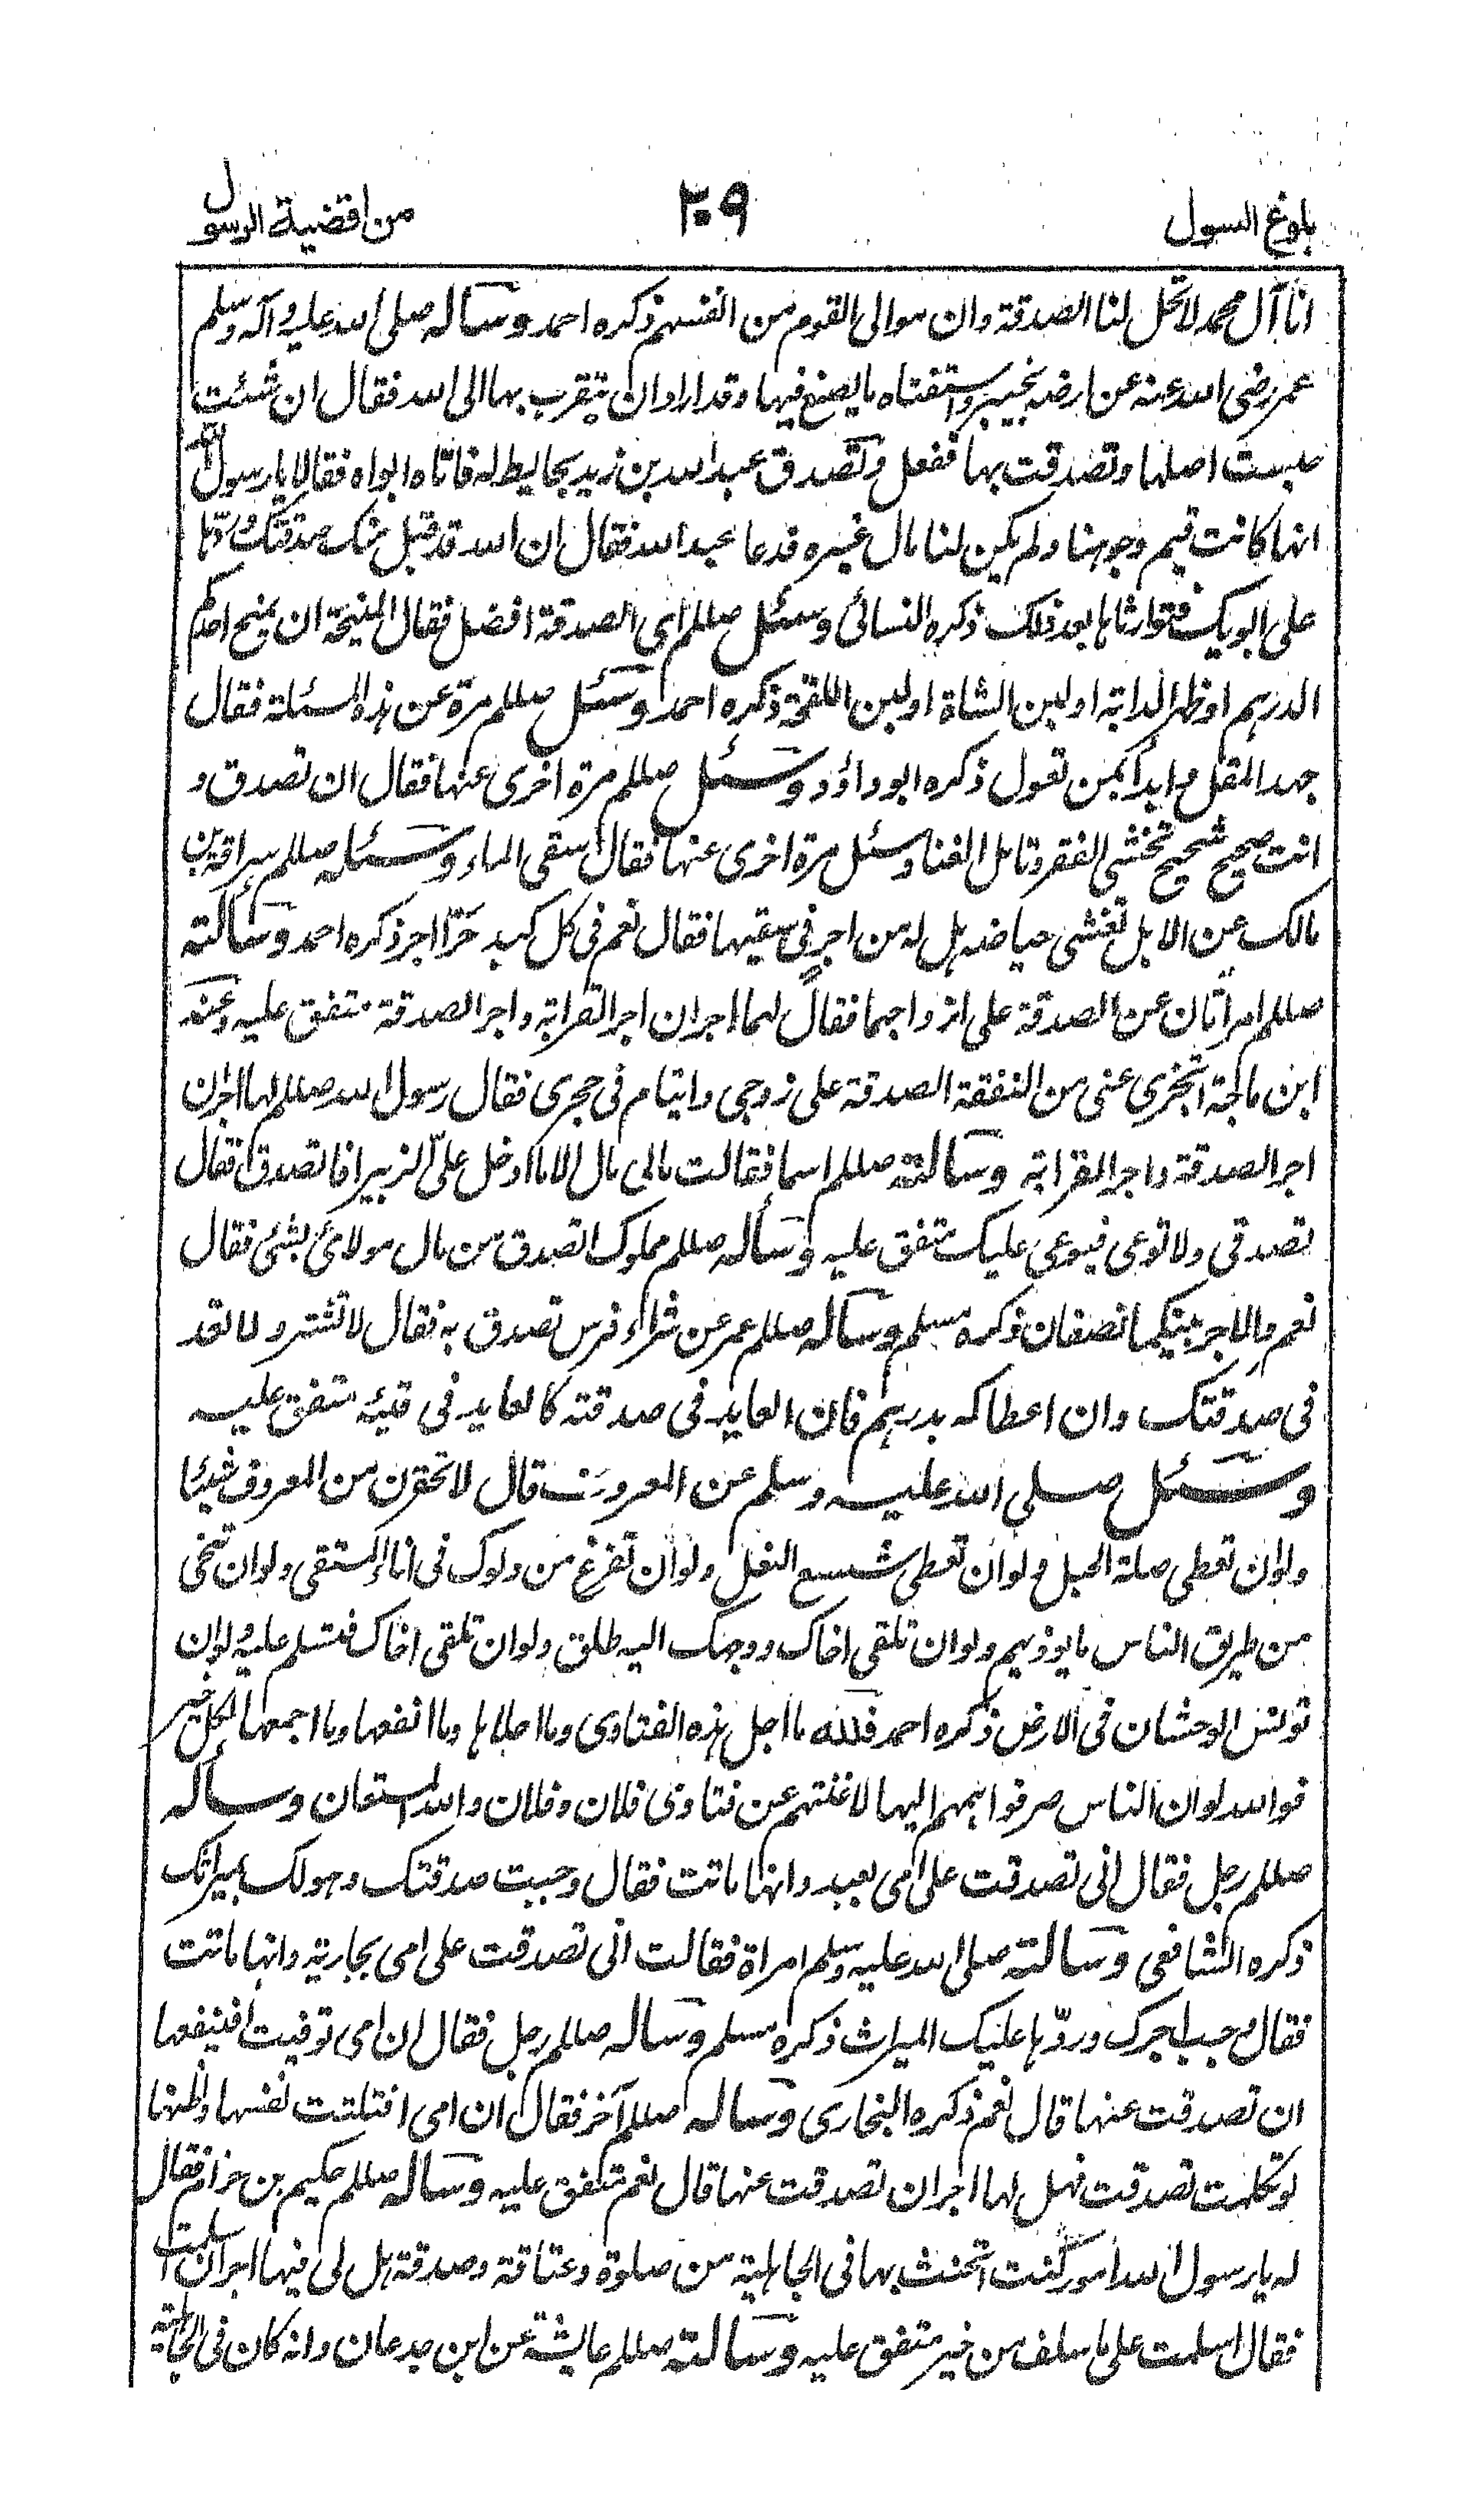 بلوغ السول
٢٠٩
من اقضية الرسول
انا آل محمد لا تحل لنا الصدقة وان موالى القوم من انفسهم ذكره احمد وسأله صلى الله عليه وآله وسلم
عمر رضى الله عنه عن ارضه بخيبر واستفتاه ما يصنع فيها وقد اراد ان يتقرب بها الى الله فقال ان شئت
حبست اصلها وتصدقت بها ففعل وتصدق عبد الله بن زيد بحايط له فاتاه ابواه فقالا يا رسول الله
انها كانت قيم وجوهنا ولم يكن لنا مال غيره فدعا عبد الله فقال ان الله قد قبل منك صدقتك وردها
على ابويك فتوارثاها بعد ذلك ذكره النسائى وسئل صللم اى الصدقة افضل فقال المنيحة ان يمنح احدكم
الدرهم او ظهر الدابة او لبن الشاة او لبن اللقحة ذكره احمد وسئل صللم مرة عن هذه المسئلة فقال
جهد المقل وابدأ بمن تعول ذكره ابو داؤد وسئل صللم مرة اخرى عنها فقال ان تصدق و
انت صحيح شحيح تخشى الفقر وتامل الغنا وسئل مرة اخرى عنها فقال اسقى الماء وسئله صللم سراقة بن
مالك عن الابل تغشى حياضه هل له من اجر فى سقيها فقال نعم فى كل كبد حرّا اجر ذكره احمد وسألته
صللم امرأتان عن الصدقة على ازواجهما فقال لهما اجران اجر القرابة واجر الصدقة متفق عليه وعند
ابن ماجة اتجزى عنى من النفقة الصدقة على زوجى وايتام فى حجرى فقال رسول الله صللم لها اجران
اجر الصدقة واجر القرابة وسألته صللم اسما فقالت مالى مال الا ما ادخل علىّ الزبير افاتصدق فقال
تصدقى ولا توعى فيوعى عليك متفق عليه وسأله صللم مملوك اتصدق من مال مولائ بشئ فقال
نعم والاجر بينكما نصفان ذكره مسلم وسأله صللم عمر عن شراء فرس تصدق به فقال لا تشتر ولا تعد
فى صدقتك وان اعطاكه بدرهم فان العايد فى صدقته كالعايد فى قيئه متفق عليه
وسئل صلى الله عليه وسلم عن المعروف قال لا تحقرن من المعروف شيئا
ولو ان تعطى صلة الحبل ولو ان تعطى شسع النعل ولو ان تفرغ من دلوك فى اناء المستقى ولو ان تنحى
من طريق الناس ما يوذيهم ولو ان تلقى اخاك ووجهك اليه طلق ولو ان تلقى اخاك فتسلم عليه ولو ان
تونس الوحشان فى الارض ذكره احمد فلله ما اجل هذه الفتاوى وما احلاها وما انفعها وما اجمعها لكل خير
فو الله لو ان الناس صرفوا هممهم اليها لاغنتهم عن فتاوى فلان وفلان والله المستعان وسأله
صللم رجل فقال انى تصدقت على امى بعبد وانها ماتت فقال وجبت صدقتك وهو لك بميراثك
ذكره الشافعى وسالته صلى الله عليه وسلم امراة فقالت انى تصدقت على امى بجارية وانها ماتت
فقال وجب اجرك وردّها عليك الميراث ذكره مسلم وساله صللم رجل فقال ان امى توفيت افينفعها
ان تصدقت عنها قال نعم ذكره البخارى وساله صللم آخر فقال ان امى افتلتت نفسها واظنها
لو تكلمت تصدقت فهل لها اجر ان تصدقت عنها قال نعم متفق عليه وسأله صللم حكيم بن حزام فقال
له يا رسول الله امور كنت اتحنث بها فى الجاهلية من صلوة وعتاقة وصدقة هل لى فيها اجر ان اسلمت
فقال اسلمت على ما سلف من خير متفق عليه وسألته صللم عايشة عن ابن جدعان وانه كان فى الجاهلية